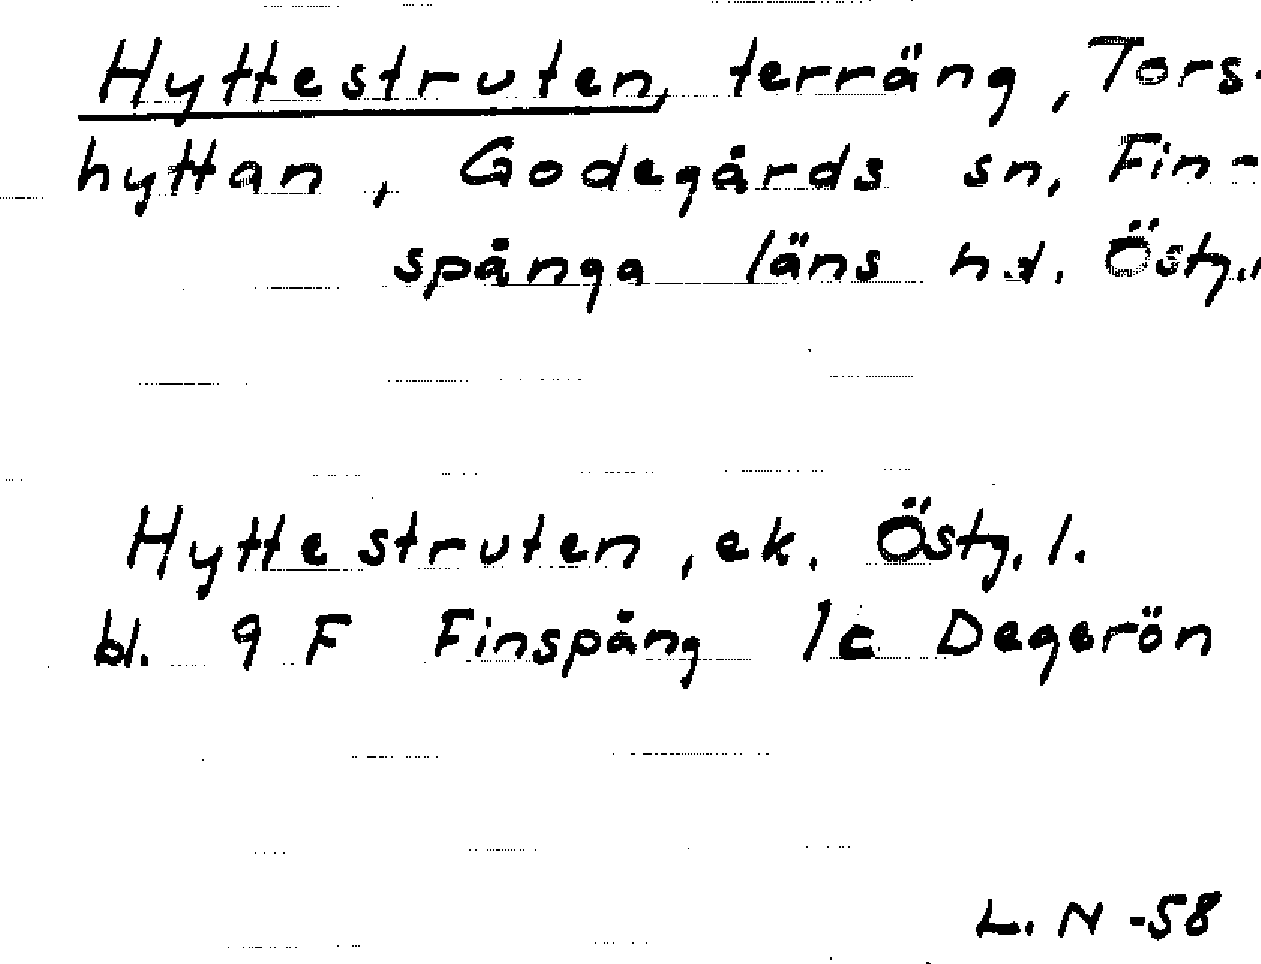 Hyttestruten, terräng, Tors-
hyttan, Godegårds sn, Fin-
spånga läns hd. Östg.l
Hyttestruten, ek. Östg. l.
bl. 9 F Finspång 1c Degerön
L. N -58